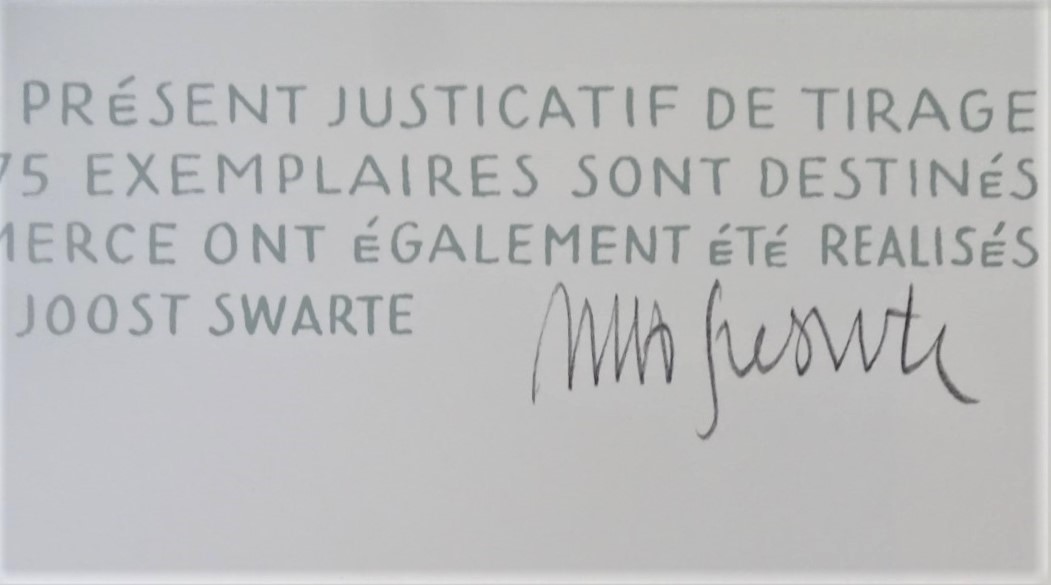 PRÉSENT JUSTICATIF DE TIRAGE
75 EXEMPLAIRES SONT DESTINÉS
MERCE ONT ÉGALEMENT ÉTÉ REALISÉS
JOOST SWARTE